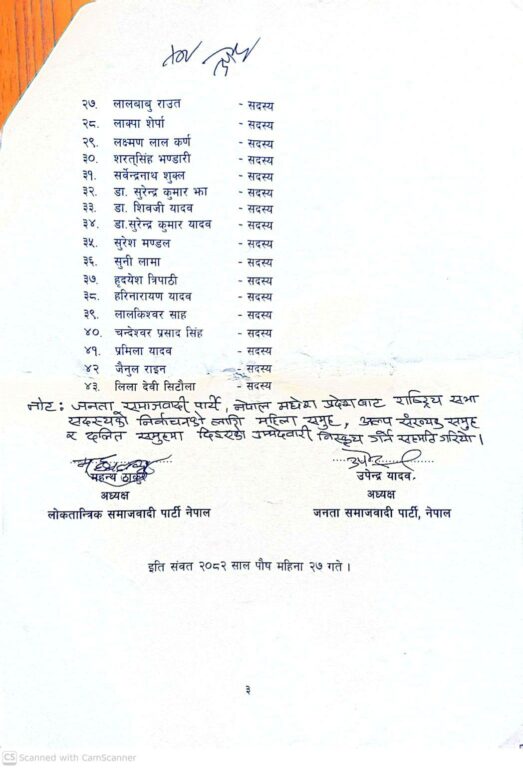 २७. लालबाबु राउत - सदस्य
२८. लाक्पा शेर्पा - सदस्य
२९. लक्ष्मण लाल कर्ण - सदस्य
३०. शरत्सिंह भण्डारी - सदस्य
३१. सर्वेन्द्रनाथ शुक्ल - सदस्य
३२. डा. सुरेन्द्र कुमार झा - सदस्य
३३. डा. शिवजी यादव - सदस्य
३४. डा.सुरेन्द्र कुमार यादव - सदस्य
३५. सुरेश मण्डल - सदस्य
३६. सुनी लामा - सदस्य
३७. हृदयेश त्रिपाठी - सदस्य
३८. हरिनारायण यादव - सदस्य
३९. लालकिश्वर साह - सदस्य
४०. चन्देश्वर प्रसाद सिंह - सदस्य
४१. प्रमिला यादव - सदस्य
४२ जैनुल राइन - सदस्य
४३. लिला देवी सिटौला - सदस्य
नोट: जनता समाजवादी पार्टी, नेपाल मधेश प्रदेशबाट राष्ट्रिय सभा
सदस्यको निर्वाचनको लागि महिला समुह, अल्प संख्यक समुह
र दलित समुहमा दिइएको उम्मेदवारी निस्कृय गर्न सहमति गरियो।
महन्थ ठाकुर
अध्यक्ष
लोकतान्त्रिक समाजवादी पार्टी नेपाल
उपेन्द्र यादव
अध्यक्ष
जनता समाजवादी पार्टी, नेपाल
इति संवत २०८२ साल पौष महिना २७ गते ।
३
CS Scanned with CamScanner